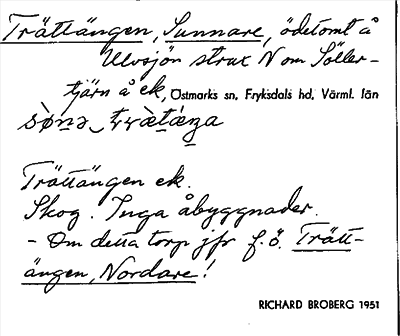 Trättängen, Sunnare, ödetomt å
Ulvsjön strax N om Söller-
tjärn å ek, Östmarks sn, Fryksdals hd, Värml. län
Trättängen ek.
Skog. Inga åbyggnader.
- Om detta torp jfr f.ö. Trätt-
ängen, Nordare!
RICHARD BROBERG 1951